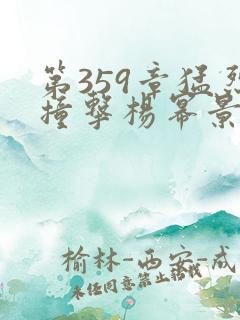 第359章猛烈
撞擊楊冪景
榆林-西安-成
未经同意禁止转载